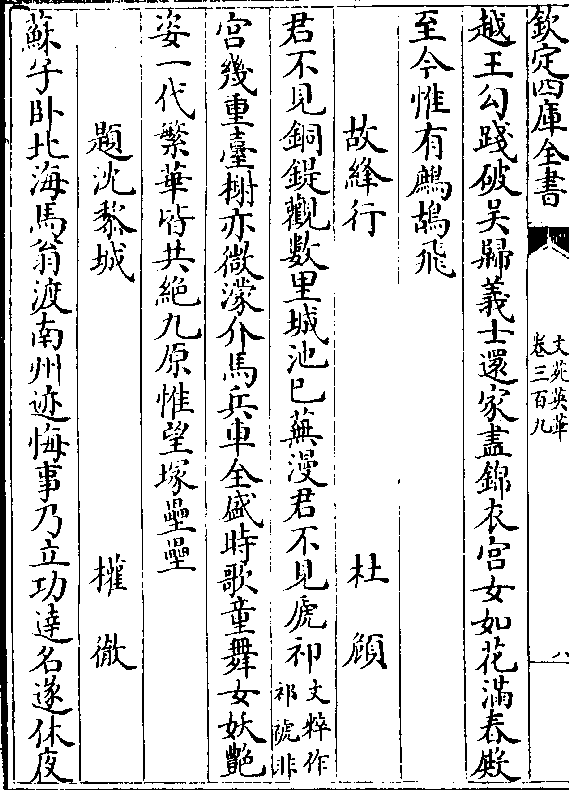 欽定四庫全書
文苑英華
卷三百九
八
越王勾踐破吳歸義士還家盡錦衣宫女如花滿春殿
至今惟有鷓鴣飛
故絳行
杜頠
君不見銅鍉觀數里城池已蕪漫君不見虒祁文粹作祁號非
宫幾重臺榭亦微濛介馬兵車全盛時歌童舞女妖艷
姿一代繁華皆共絶九原惟望塚壘壘
題沈黎城
權徹
蘇子卧北海馬翁渡南州迹悔事乃立功達名遂休夜